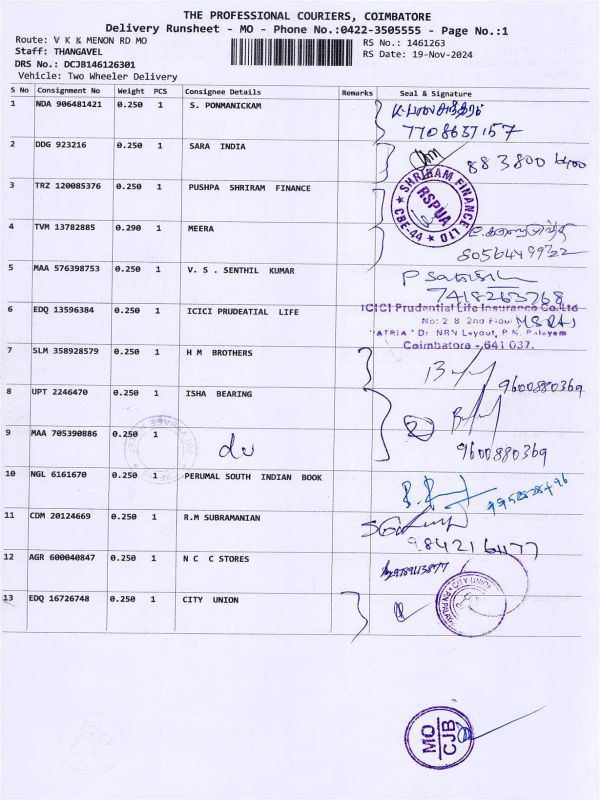 THE PROFESSIONAL COURIERS, COIMBATORE
Delivery Runsheet - MO - Phone No.:0422-3505555 - Page No.:1
Route: V K K MENON RD MO
RS No.: 1461263
Staff: THANGAVEL
RS Date: 19-Nov-2024
DRS No.: DCJB146126301
Vehicle: Two Wheeler Delivery
S No Consignment No Weight PCS Consignee Details Remarks Seal & Signature
1 NDA 906481421 0.250 1 S. PONMANICKAM
7708637157
2 DDG 923216 0.250 1 SARA INDIA
883800 6400
3 TRZ 120085376 0.250 1 PUSHPA SHRIRAM FINANCE
SHRIRAM FINANCE LTD ★ CBE-44 ★
RSPUA
4 TVM 13782885 0.290 1 MEERA
8056449922
5 MAA 576398753 0.250 1 V. S . SENTHIL KUMAR
7418263768
6 EDQ 13596384 0.250 1 ICICI PRUDEATIAL LIFE
ICICI Prudential Life Insurance Co.Ltd
No: 2 8 2nd Floor
"ATRIA" Dr. NRN Layout, P.N. Palayam
Coimbatore - 641 037.
7 SLM 358928579 0.250 1 H M BROTHERS
9600880369
8 UPT 2246470 0.250 1 ISHA BEARING
9 MAA 705390886 0.250 1 do
9600880369
10 NGL 6161670 0.250 1 PERUMAL SOUTH INDIAN BOOK
11 CDM 20124669 0.250 1 R.M SUBRAMANIAN
12 AGR 600040847 0.250 1 N C C STORES
13 EDQ 16726748 0.250 1 CITY UNION
CITY UNION
MO
CJB